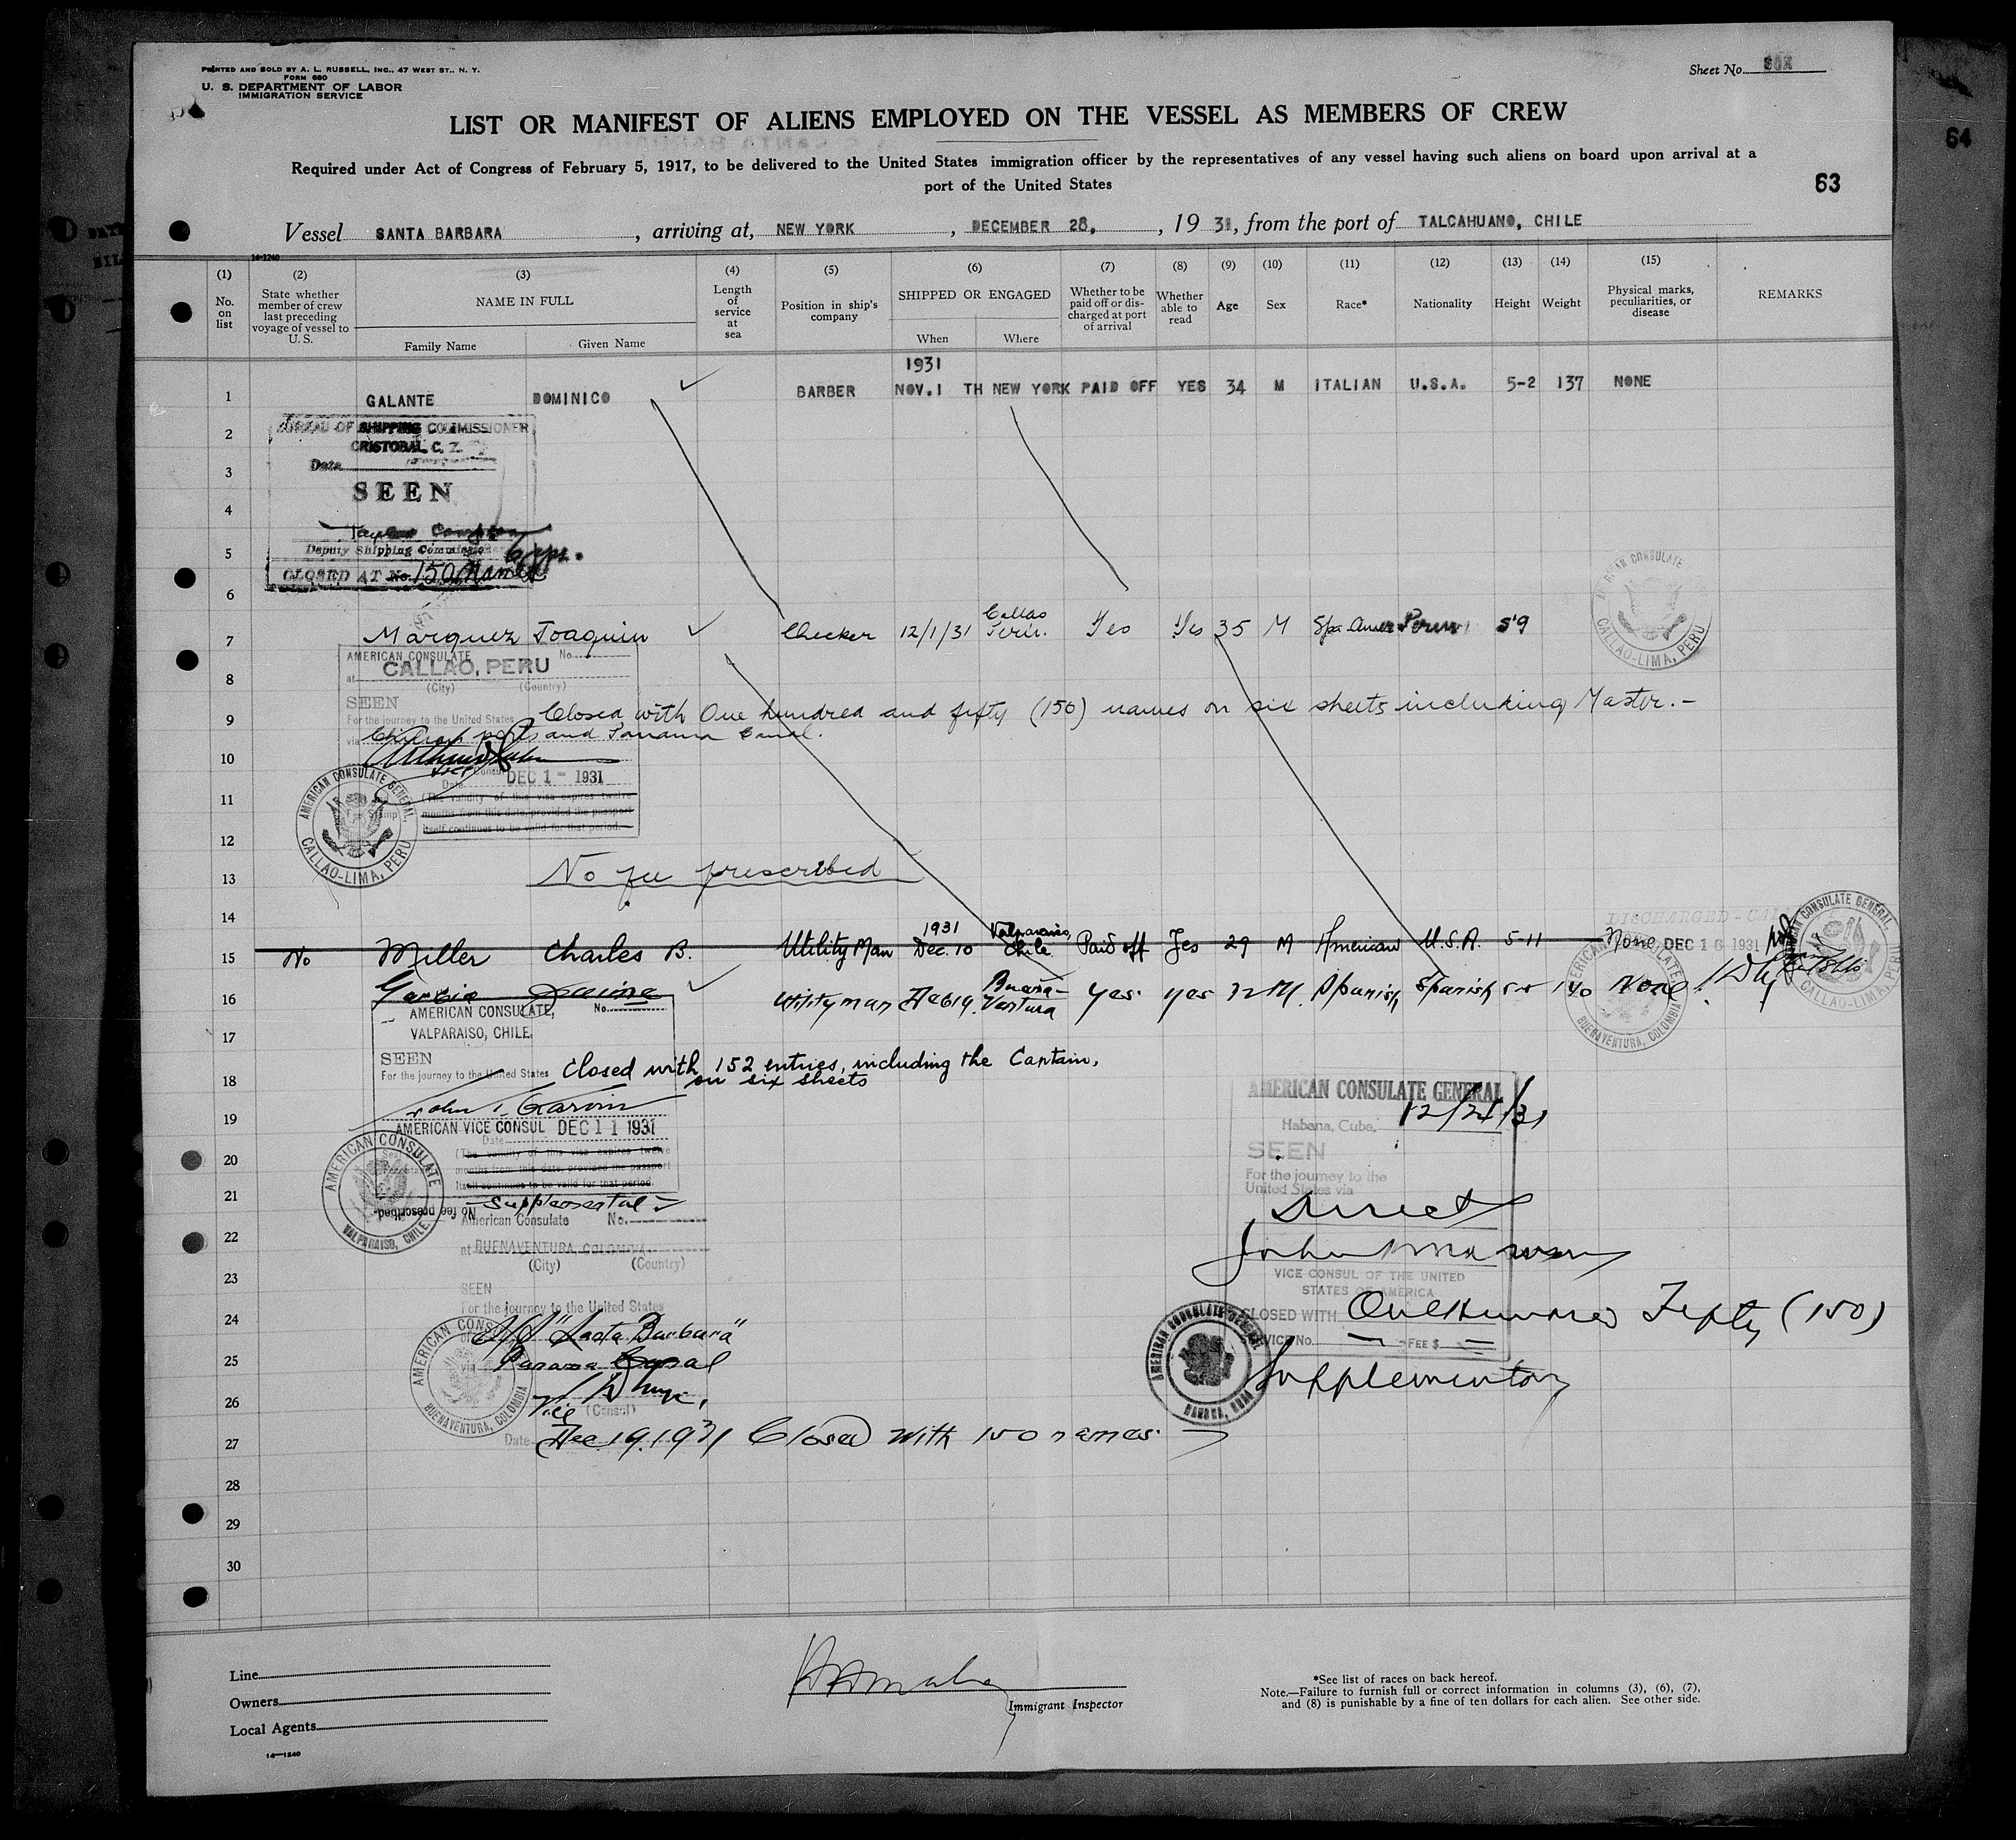 PRINTED AND SOLD BY A. L. RUSSELL, INC., 47 WEST ST., N. Y.
FORM 680
U. S. DEPARTMENT OF LABOR
IMMIGRATION SERVICE
Sheet No.
LIST OR MANIFEST OF ALIENS EMPLOYED ON THE VESSEL AS MEMBERS OF CREW
Required under Act of Congress of February 5, 1917, to be delivered to the United States immigration officer by the representatives of any vessel having such aliens on board upon arrival at a
port of the United States
63
64
Vessel SANTA BARBARA, arriving at, NEW YORK, DECEMBER 28, 1931, from the port of TALCAHUANO, CHILE
14-1240
(1) (2) (3) (4) (5) (6) (7) (8) (9) (10) (11) (12) (13) (14) (15)
No. on list
State whether member of crew last preceding voyage of vessel to U. S.
NAME IN FULL
Family Name
Given Name
Length of service at sea
Position in ship's company
SHIPPED OR ENGAGED
When
Where
Whether to be paid off or discharged at port of arrival
Whether able to read
Age
Sex
Race*
Nationality
Height
Weight
Physical marks, peculiarities, or disease
REMARKS
1931
1 GALANTE DOMINICO BARBER NOV. 1 TH NEW YORK PAID OFF YES 34 M ITALIAN U.S.A. 5-2 137 NONE
2 BUREAU OF SHIPPING COMMISSIONER
CRISTOBAL, C. Z.
3 Date
SEEN
4
5 Deputy Shipping Commissioner
CLOSED AT No. 150 Names
6
AMERICAN CONSULATE CALLAO-LIMA, PERU
7 Marquez Joaquin Checker 12/1/31 Callao Peru. Yes Yes 35 M Spa. Amer Peru 5'9
AMERICAN CONSULATE No.
at CALLAO, PERU
8 (City) (Country)
SEEN
9 For the journey to the United States Closed with One hundred and fifty (150) names on six sheets including Master.-
via Chilean ports and Panama Canal.
10
Vice Consul
DEC 1 - 1931
Date
11 (The validity of this visa expires twelve
months from this date, provided the passport
itself continues to be valid for that period.
AMERICAN CONSULATE GENERAL, CALLAO-LIMA, PERU
12
13 No fee prescribed
14
DISCHARGED - CAL
DEC 16 1931
AMERICAN CONSULATE GENERAL, CALLAO-LIMA, PERU
15 No Miller Charles B. Utility Man 1931 Dec. 10 Valparaiso, Chile Paid off Yes 29 M American U.S.A. 5-11 None
16 Garcia Jaime Utilityman Dec 19. Buena-Ventura yes yes 32 M. Spanish Spanish 5-5 140 None
AMERICAN CONSULATE BUENAVENTURA, COLOMBIA
AMERICAN CONSULATE, No.
17 VALPARAISO, CHILE.
SEEN
For the journey to the United States Closed with 152 entries, including the Captain,
18 on six sheets
19
AMERICAN VICE CONSUL DEC 11 1931
Date
20 (The validity of this visa expires twelve
months from this date, provided the passport
itself continues to be valid for that period.
AMERICAN CONSULATE VALPARAISO, CHILE
No fee prescribed
21 Supplemental
American Consulate No.
22 at BUENAVENTURA, COLOMBIA
(City) (Country)
23 SEEN
For the journey to the United States
24 S/S "Santa Barbara"
25 via Panama Canal
26 Vice (Consul)
AMERICAN CONSULATE BUENAVENTURA, COLOMBIA
27 Date Dec. 19. 1931 Closed with 150 names.
AMERICAN CONSULATE GENERAL
12/24/31
Habana, Cuba,
SEEN
For the journey to the
United States via
Direct
VICE CONSUL OF THE UNITED
STATES OF AMERICA
CLOSED WITH One Hundred Fifty (150)
SERVICE No. FEE $
AMERICAN CONSULATE GENERAL HABANA, CUBA
Supplementary
28
29
30
Line
Owners
Local Agents
14-1240
Immigrant Inspector
*See list of races on back hereof.
Note.—Failure to furnish full or correct information in columns (3), (6), (7),
and (8) is punishable by a fine of ten dollars for each alien. See other side.